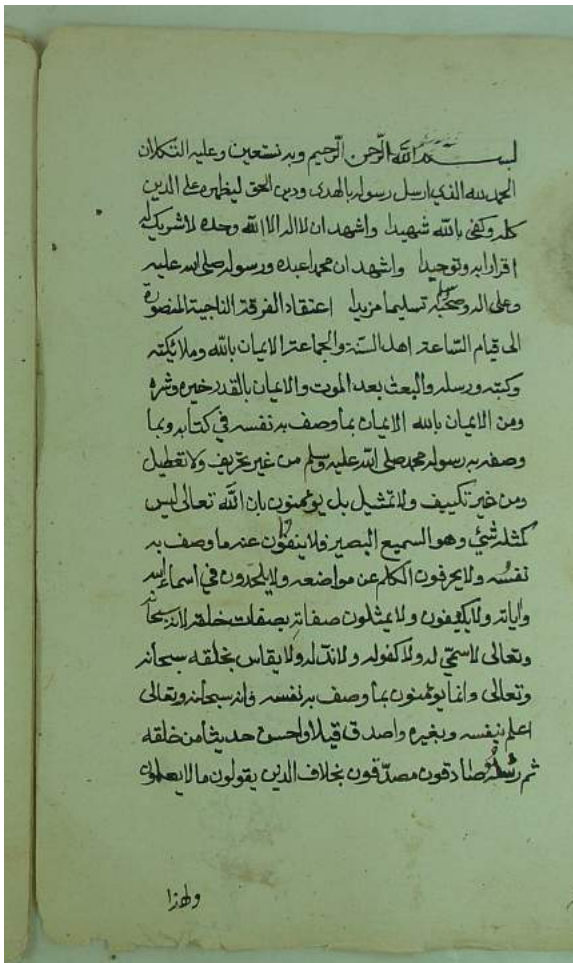 بسم الله الرحمن الرحيم وبه نستعين وعليه التكلان
الحمد لله الذي ارسل رسوله بالهدى ودين الحق ليظهره على الدين
كله وكفى بالله شهيدا واشهد ان لا اله الا الله وحده لا شريك له
اقرارا به وتوحيدا واشهد ان محمدا عبده ورسوله صلى الله عليه
وعلى اله وصحبه وسلم تسليما مزيدا اعتقاد الفرقة الناجية المنصورة
الى قيام الساعة اهل السنة والجماعة الايمان بالله وملائكته
وكتبه ورسله والبعث بعد الموت والايمان بالقدر خيره وشره
ومن الايمان بالله الايمان بما وصف به نفسه في كتابه وبما
وصفه به رسوله محمد صلى الله عليه وسلم من غير تحريف ولا تعطيل
ومن غير تكييف ولا تمثيل بل يؤمنون بان الله تعالى ليس
كمثله شئ وهو السميع البصير فلا ينفون عنه ما وصف به
نفسه ولا يحرفون الكلم عن مواضعه ولا يلحدون في اسماء الله
واياته ولا يكيفون ولا يمثلون صفاته بصفات خلقه لانه سبحانه
وتعالى لا سمي له ولا كفو له ولا ند له ولا يقاس بخلقه سبحانه
وتعالى وانما يؤمنون بما وصف به نفسه فانه سبحانه وتعالى
اعلم بنفسه وبغيره واصدق قيلا واحسن حديثا من خلقه
ثم رسله صادقون مصدقون بخلاف الذين يقولون ما لا يعلمون
ولهذا